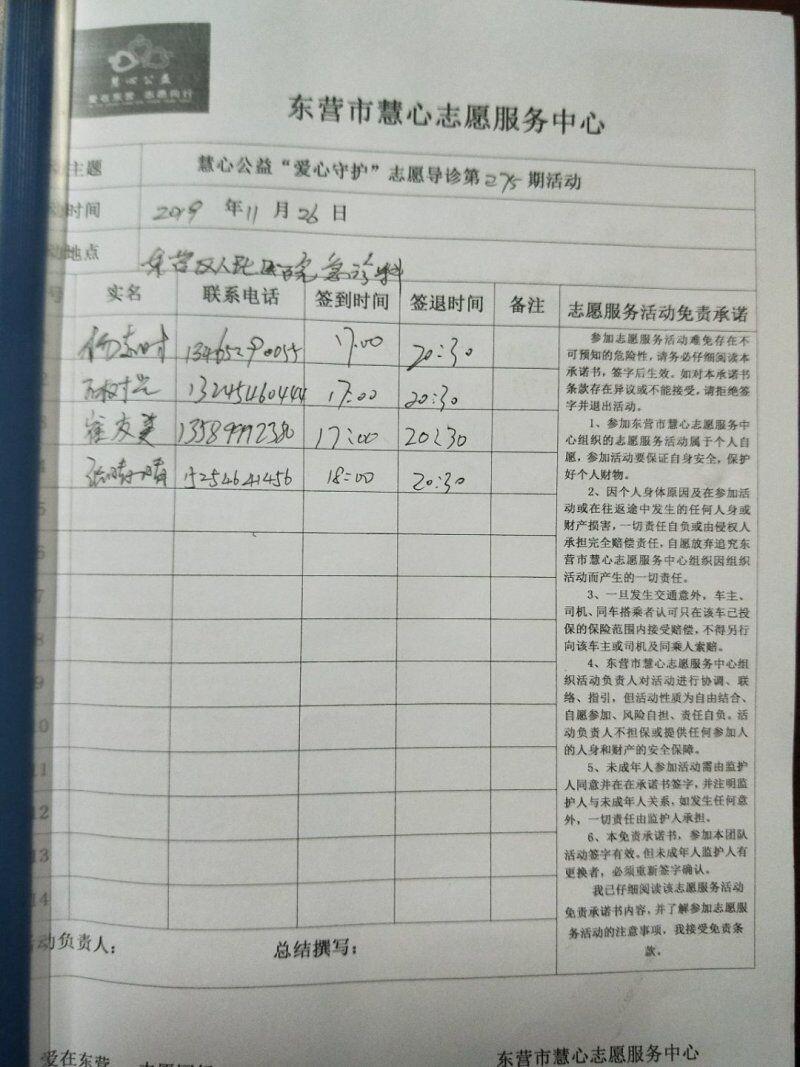 慧心公益
爱在东营 志愿同行
东营市慧心志愿服务中心
主题 慧心公益“爱心守护”志愿导诊第275期活动
时间 2019年11月26日
地点 东营区人民医院急诊科
号 实名 联系电话 签到时间 签退时间 备注 志愿服务活动免责承诺
13465290055 17:00 20:30
13245460444 17:00 20:30
3 崔友美 13589992380 17:00 20:30
4 张晴晴 15254641456 18:00 20:30
5
6
7
8
9
10
11
12
13
14
参加志愿服务活动难免存在不
可预知的危险性，请务必仔细阅读本
承诺书，签字后生效。如对本承诺书
条款存在异议或不能接受，请拒绝签
字并退出活动。
1、参加东营市慧心志愿服务中
心组织的志愿服务活动属于个人自
愿，参加活动要保证自身安全，保护
好个人财物。
2、因个人身体原因及在参加活
动或在往返途中发生的任何人身或
财产损害，一切责任自负或由侵权人
承担完全赔偿责任，自愿放弃追究东
营市慧心志愿服务中心组织因组织
活动而产生的一切责任。
3、一旦发生交通意外，车主、
司机、同车搭乘者认可只在该车已投
保的保险范围内接受赔偿，不得另行
向该车主或司机及同乘人索赔。
4、东营市慧心志愿服务中心组
织活动负责人对活动进行协调、联
络、指引，但活动性质为自由结合、
自愿参加、风险自担、责任自负。活
动负责人不担保或提供任何参加人
的人身和财产的安全保障。
5、未成年人参加活动需由监护
人同意并在在承诺书签字，并注明监
护人与未成年人关系，如发生任何意
外，一切责任由监护人承担。
6、本免责承诺书，参加本团队
活动签字有效。但未成年人监护人有
更换者，必须重新签字确认。
我已仔细阅读该志愿服务活动
免责承诺书内容，并了解参加志愿服
务活动的注意事项，我接受免责条
款。
活动负责人： 总结撰写：
爱在东营 志愿同行 东营市慧心志愿服务中心